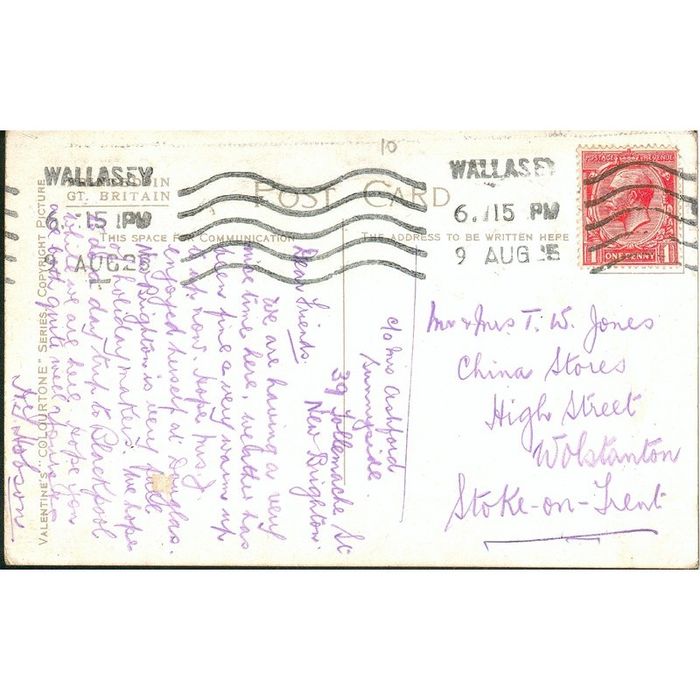 10
WALLASEY
6. 15 PM
9 AUG 25
WALLASEY
6. 15 PM
9 AUG 25
GT. BRITAIN
POST CARD
THIS SPACE FOR COMMUNICATION
THE ADDRESS TO BE WRITTEN HERE
POSTAGE REVENUE
1 ONE PENNY 1
VALENTINE'S "COLOURTONE" SERIES. COPYRIGHT PICTURE
c/o Mrs Ashford
Sunnyside
39 Tollemache St
New Brighton.
Dear Friends.
We are having a very
nice time here, weather has
been fine & very warm up
to now. Hope Miss J.
enjoyed herself at Douglas.
New Brighton is very full
of holiday makers. We hope
to have a day trip to Blackpool
while we are here. Hope you
are all quite well. Yours
A & J Hobson
Mr & Mrs T. W. Jones
China Stores
High Street
Wolstanton
Stoke-on-Trent